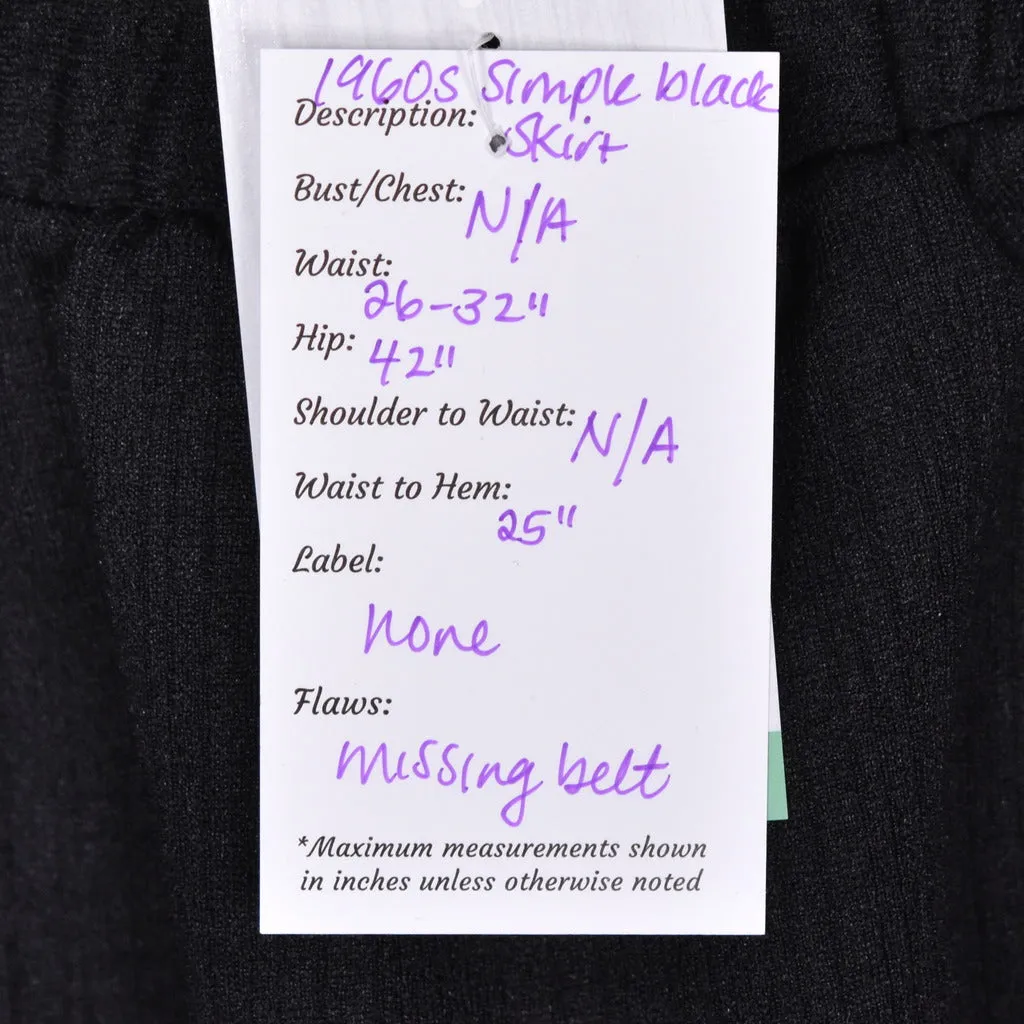 1960s Simple black
Description: Skirt
Bust/Chest: N/A
Waist: 26-32"
Hip: 42"
Shoulder to Waist: N/A
Waist to Hem: 25"
Label:
none
Flaws:
missing belt
*Maximum measurements shown
in inches unless otherwise noted